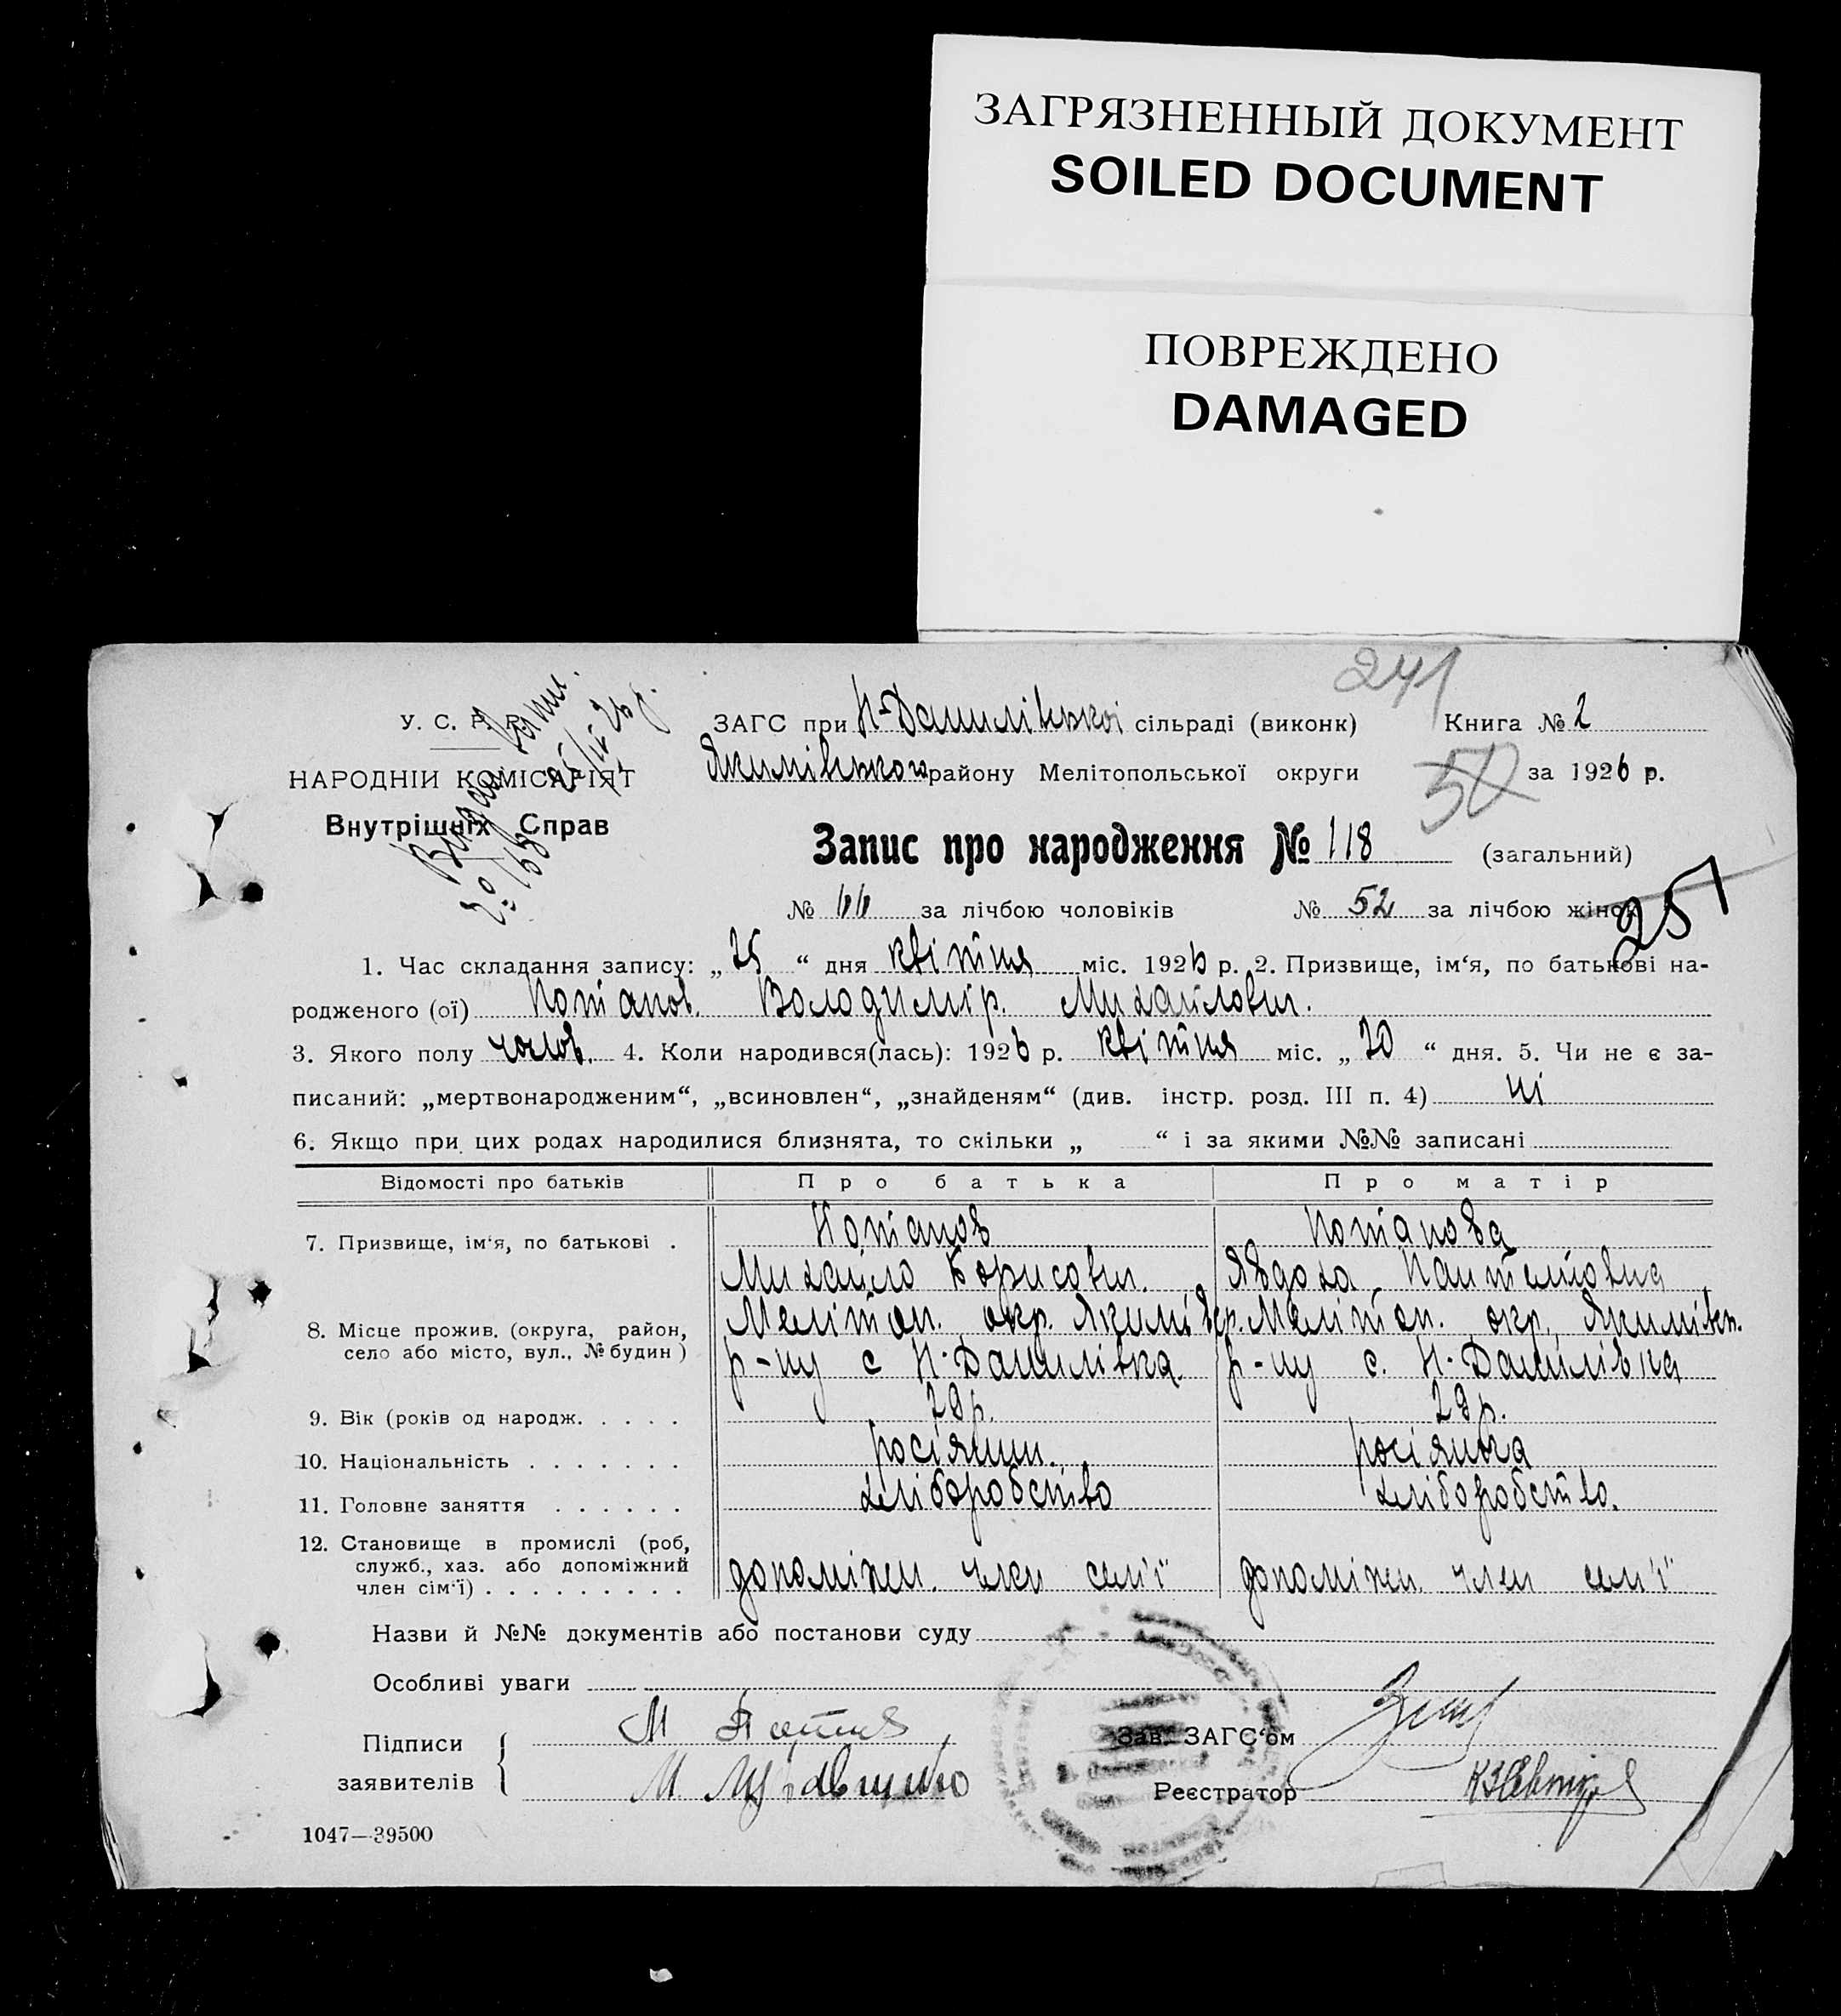 ЗАГРЯЗНЕННЫЙ ДОКУМЕНТ
SOILED DOCUMENT
ПОВРЕЖДЕНО
DAMAGED
241
У. С. Р. Р.
ЗАГС при Н-Данилівської сільраді (виконк) Книга № 2
НАРОДНІЙ КОМІСАРІЯТ
Якимівського району Мелітопольської округи 50 за 1926 р.
Внутрішніх Справ
Запис про народження № 118 (загальний)
№ 66 за лічбою чоловіків № 52 за лічбою жінок
251
1. Час складання запису: „25“ дня квітня міс. 1926 р. 2. Призвище, ім‘я, по батькові на-
родженого (ої) Потапов Володимір Михайлович.
3. Якого полу чолов. 4. Коли народився(лась): 1926 р. квітня міс. „20“ дня. 5. Чи не є за-
писаний: „мертвонародженим“, „всиновлен“, „знайденям“ (див. інстр. розд. III п. 4) ні
6. Якщо при цих родах народилися близнята, то скільки „ “ і за якими №№ записані
Відомості про батьків Про батька Про матір
7. Призвище, ім‘я, по батькові . Потапов Потапова
Михайло Борисович. Явдоха Пантелїовна
8. Місце прожив. (округа, район, Меліт оп. окр. Якимівср. Меліт оп. окр., Якимівсп.
село або місто, вул., № будин ) р-ну с Н-Данилівка. р-ну с. Н-Данилівка
9. Вік (років од народж. . . . . 29р. 29р.
10. Національність . . . . . . . росіянин. росіянка
11. Головне заняття . . . . . . хліборобство хліборобство.
12. Становище в промислі (роб,
служб., хаз. або допоміжний
член сім‘ї) . . . . . . . . . допоміжн. член сем'ї допоміжн. член сем'ї
Назви й №№ документів або постанови суду
Особливі уваги
Підписи М Потапов Зав. ЗАГС‘ом
заявителів М. Реєстратор
1047—39500